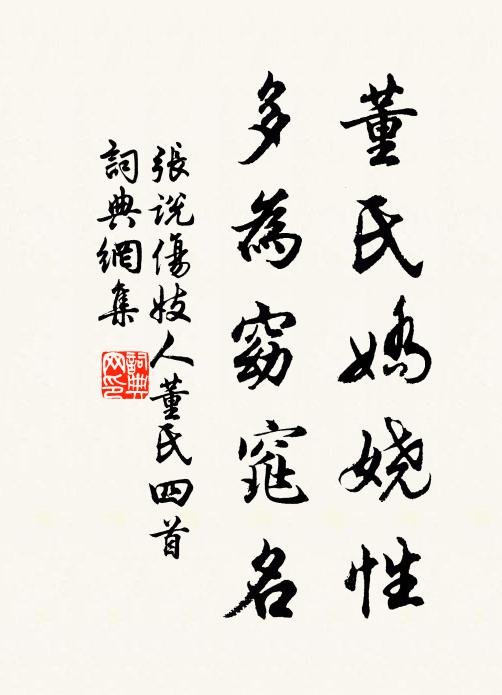 董氏嬌嬈性
多為窈窕名
張説傷妓人董氏四首
詞典網集
詞典
网印